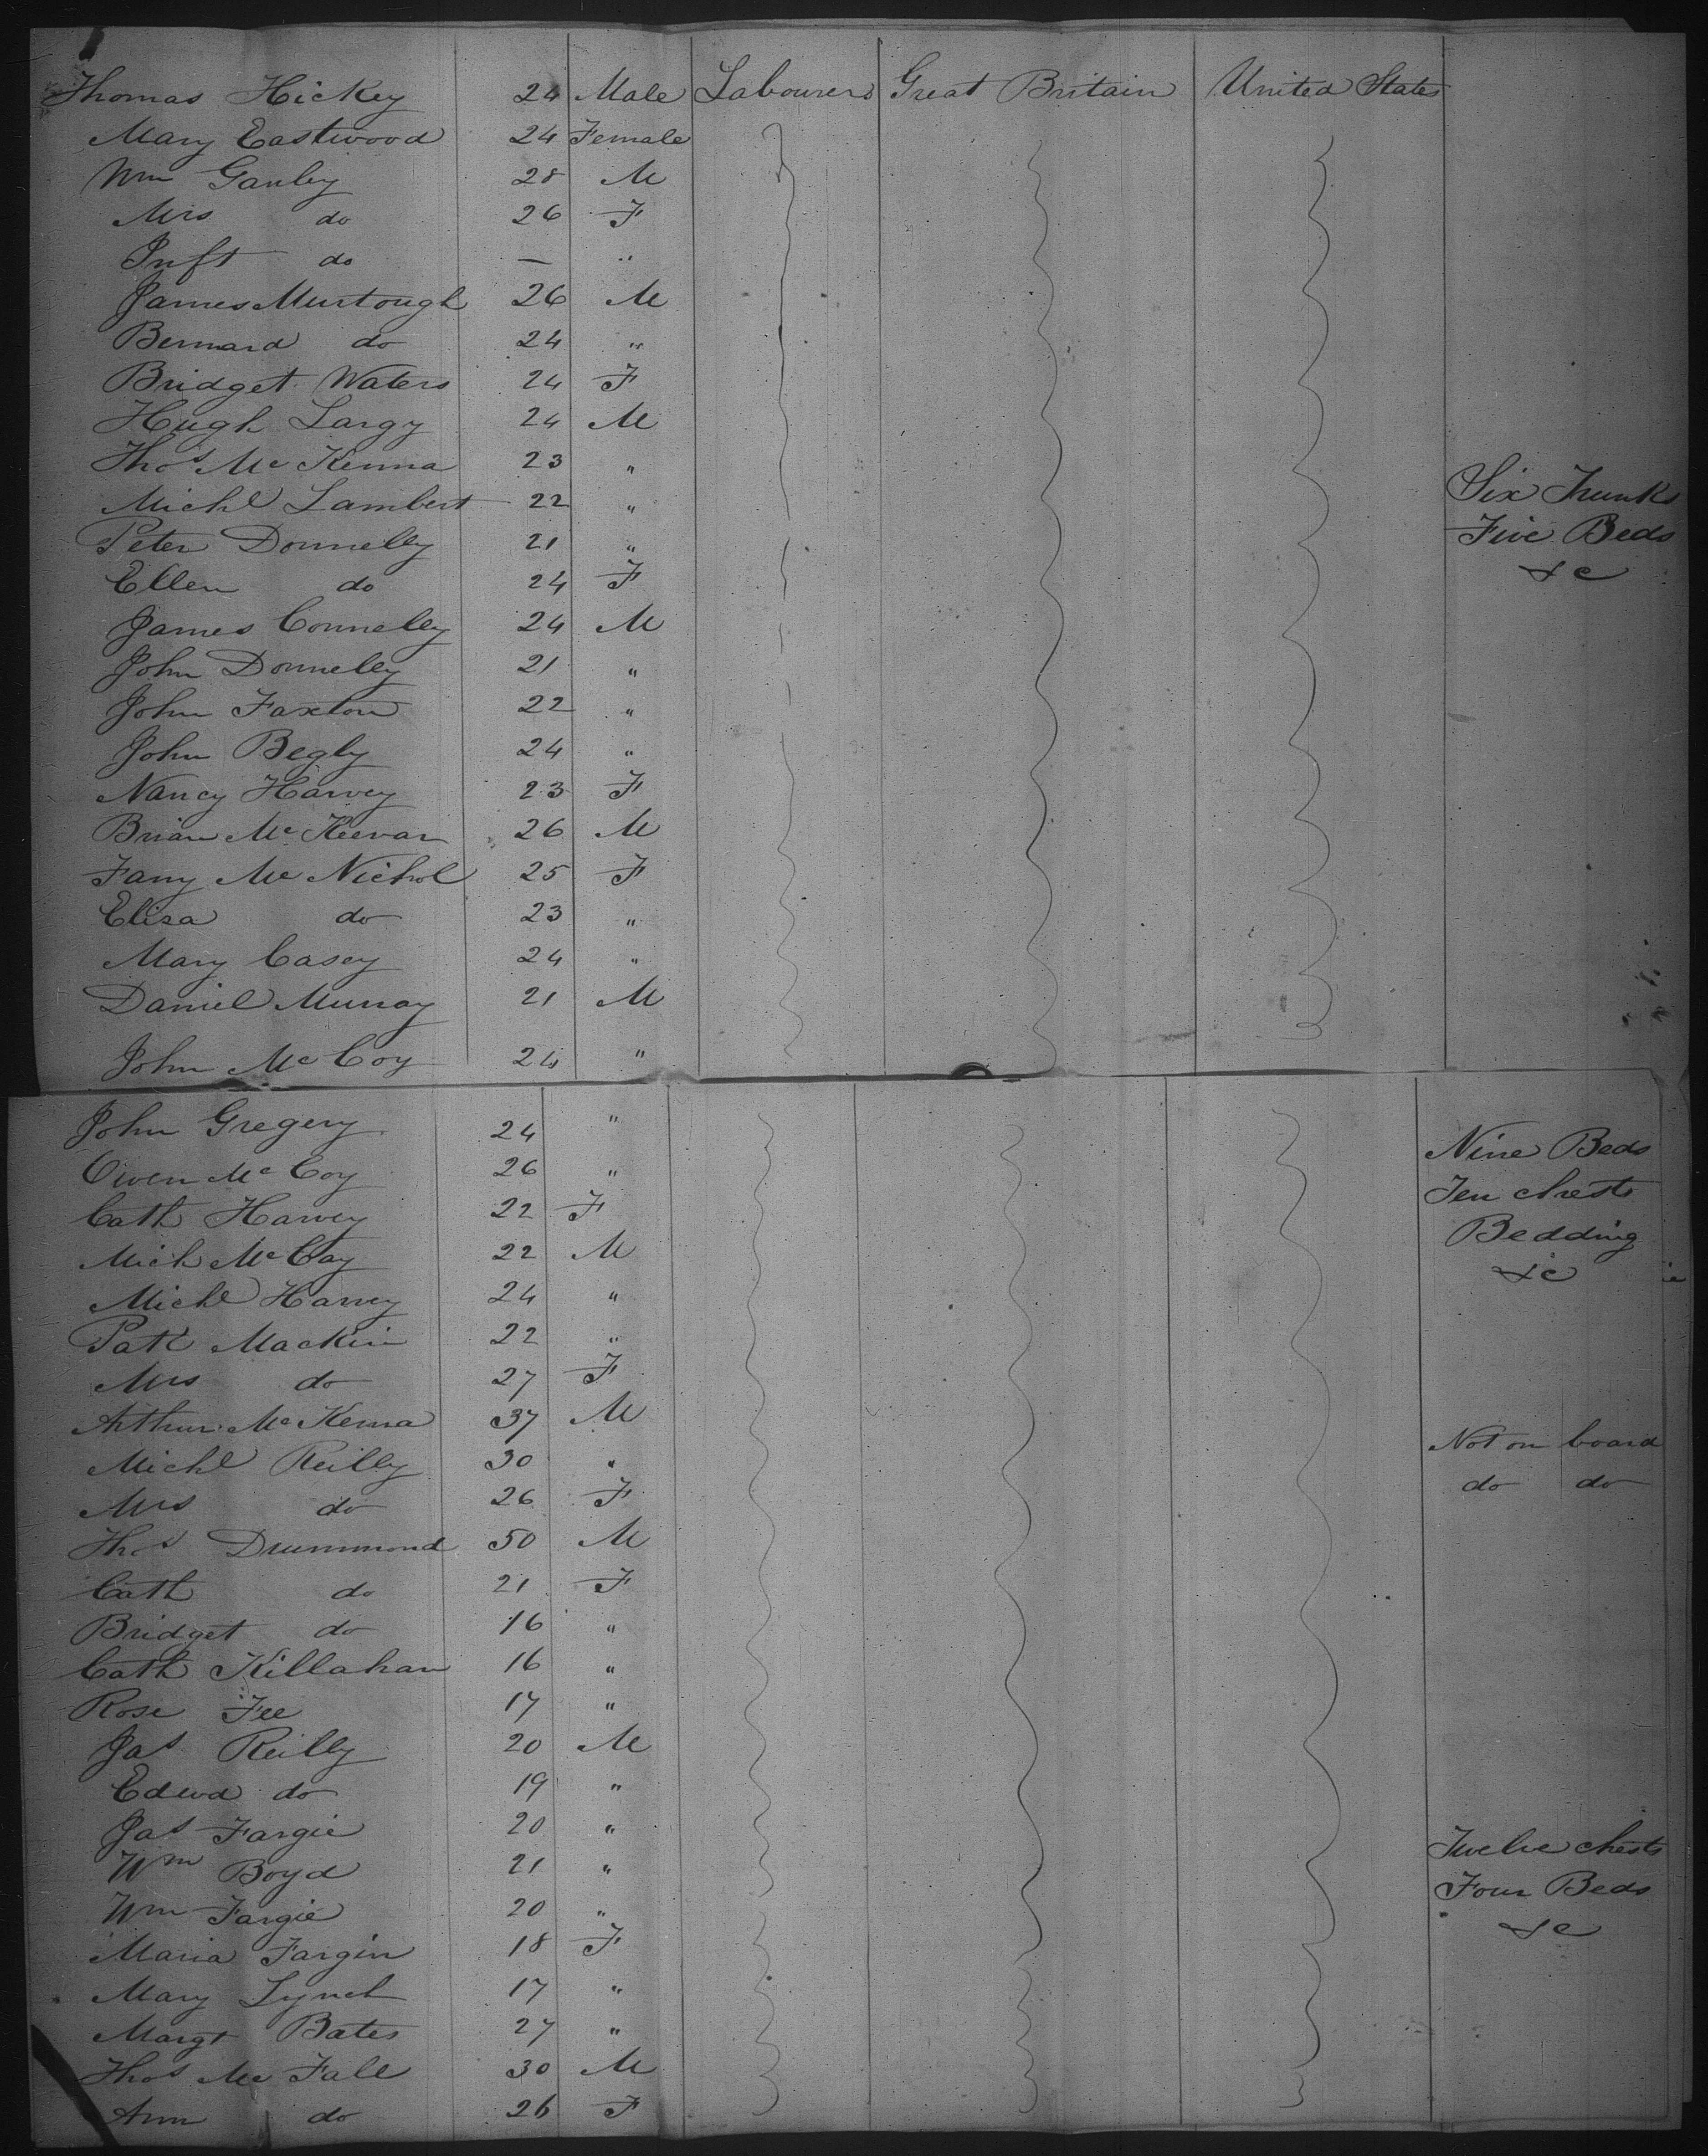 Thomas Hickey 24 Male Labourers Great Britain United States
Mary Eastwood 24 Female
Wm Ganley 28 M
Mrs do 26 F
Inft do — "
James Murtough 26 M
Bernard do 24 "
Bridget Waters 24 F
Hugh Largy 24 M
Thos McKenna 23 "
Michl Lambert 22 " Six Trunks
Peter Donnelly 21 " Five Beds
Ellen do 24 F &c
James Connelly 24 M
John Donnelly 21 "
John Faxton 22 "
John Begly 24 "
Nancy Harvey 23 F
Brian McKeevan 26 M
Fany McNichol 25 F
Eliza do 23 "
Mary Casey 24 "
Daniel Murray 21 M
John McCoy 24 "
John Gregery 24 " Nine Beds
Owen McCoy 26 " Ten chests
Cath Harvey 22 F Bedding
Mich McCoy 22 M &c
Michl Harvey 24 "
Patk Mackin 22 "
Mrs do 27 F
Arthur McKenna 37 M Not on board
Michl Reilly 30 " do do
Mrs do 26 F
Thos Drummond 50 M
Cath do 21 F
Bridget do 16 "
Cath Killahan 16 "
Rose Fee 17 "
Jas Reilly 20 M
Edwd do 19 "
Jas Fargie 20 " Twelve chests
Wm Boyd 21 " Four Beds
Wm Fargie 20 " &c
Maria Fargin 18 F
Mary Lynch 17 "
Margt Bates 27 "
Thos McFall 30 M
Ann do 26 F